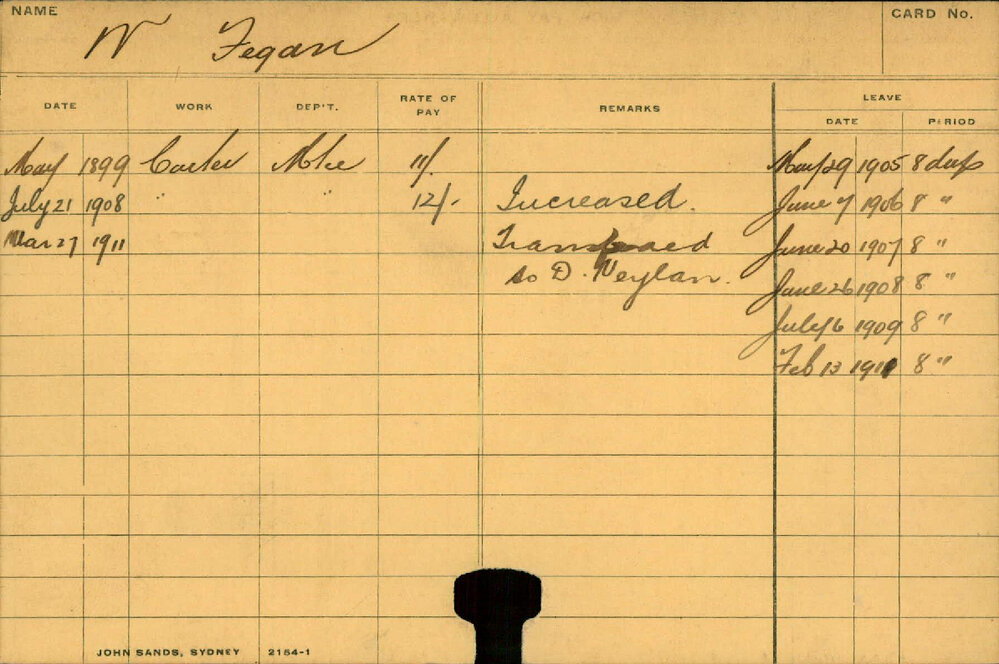 NAME
W Fegan
CARD No.
DATE WORK DEP'T. RATE OF PAY REMARKS LEAVE
DATE PERIOD
May 1899 Carter 11/. May 29 1905 8 days
July 21 1908 " " 12/- Increased. June 7 1906 8 "
Mar 27 1911 Transferred June 20 1907 8 "
to D. Neylan. June 26 1908 8 "
July 6 1909 8 "
Feb 13 1911 8 "
JOHN SANDS, SYDNEY 2154-1